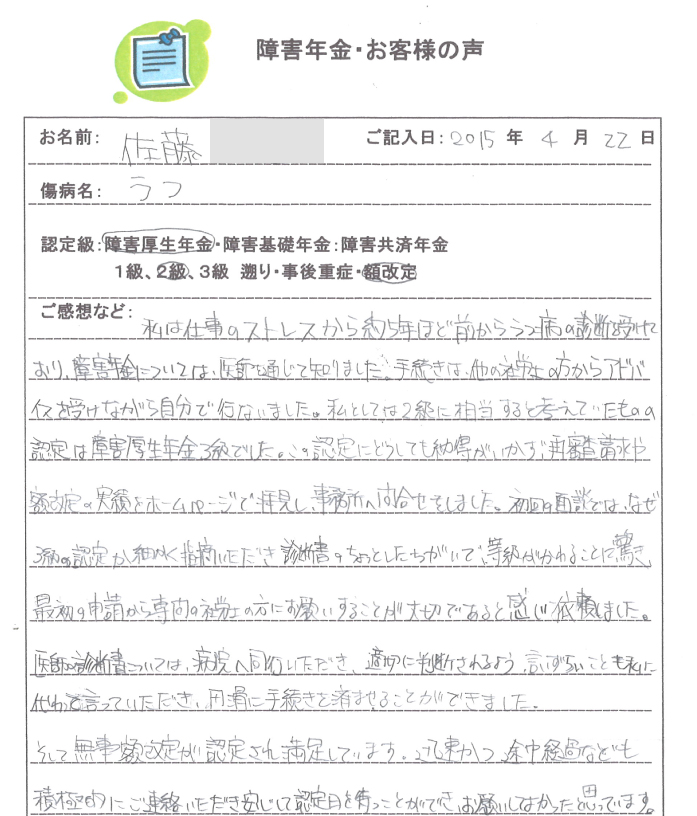 障害年金・お客様の声
お名前: 佐藤 ご記入日: 2015 年 4 月 22 日
傷病名: うつ
認定級:障害厚生年金・障害基礎年金:障害共済年金
1級、2級、3級 遡り・事後重症・額改定
ご感想など:
私は仕事のストレスから約5年ほど前からうつ病の診断を受けて
おり、障害年金については、医師を通じて知りました。手続きは、他の社労士の方からアドバ
イスを受けながら自分で行ないました。私としては2級に相当すると考えていたものの
認定は障害厚生年金3級でした。この認定にどうしても納得がいかず、再審査請求や
額改定の実績をホームページで拝見し、事務所へ問合せをしました。初回の面談では、なぜ
3級の認定か細かく指摘いただき診断書のちょっとしたちがいで、等級がかわることに驚き、
最初の申請から専門の社労士の方にお願いすることが大切であると感じ依頼しました。
医師の診断書については、病院へ同行いただき、適切に判断されるよう、言いずらいことも私に
代わって言っていただき、円滑に手続きを済ませることができました。
そして無事額改定が認定され満足しています。迅速かつ、途中経過なども
積極的にご連絡いただき安心して認定日を待つことができ、お願いしてよかったと思っています。